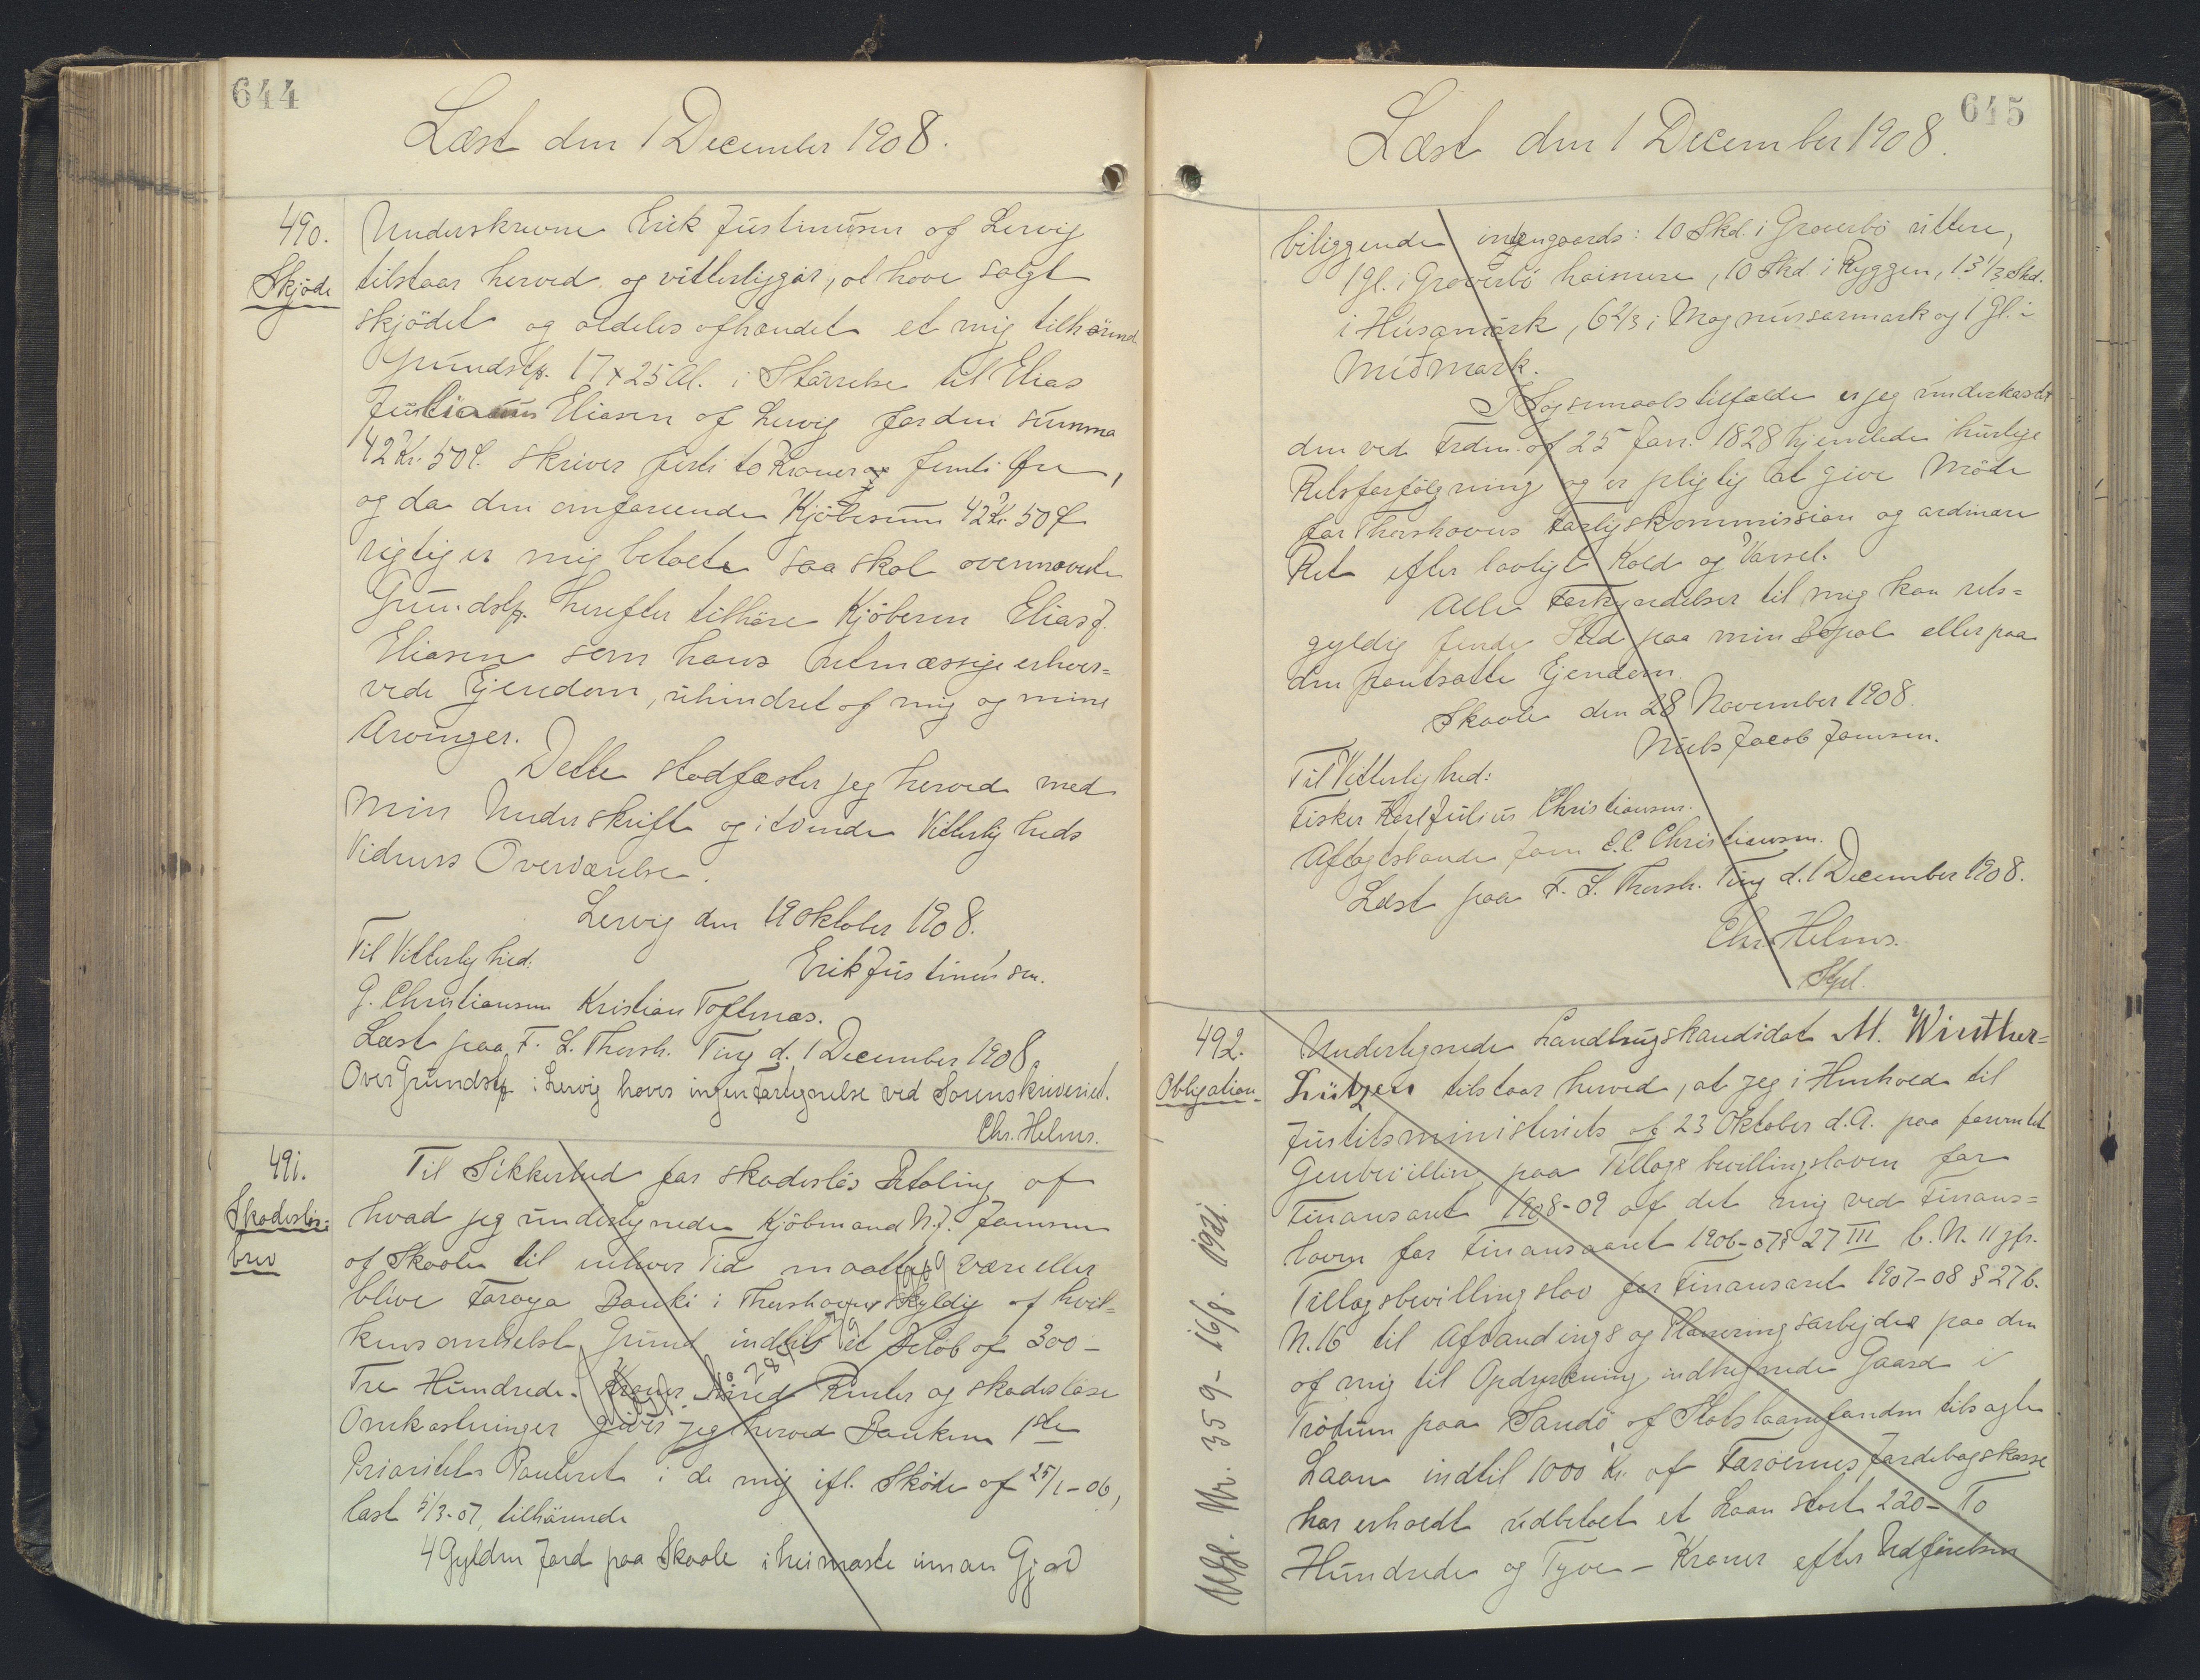 644
Læst den 1 December 1908.
490.
Skjøde
Underskrevne Erik Justinussen af Lervig
tilstaar herved og vitterliggør, at have solgt
skjødet og aldeles afhændet et mig tilhørend
Grundstk. 17x25 Al. i Størrelse til Elias
Eliasen af Lervig for den summa
42 Kr. 50 Ø. skriver firti to Kroner og femti Øre,
og da den omførende Kjøbesum 42 Kr. 50 Ø
rigtig er mig betalte saa skal ovennævnte
Grundstk. herefter tilhøre Kjøberen Elias J.
Eliasen som hans retmæssige erhver=
vede Ejendom, uhindret af mig og mine
Arvinger.
Dette stadfæster jeg herved med
Min Underskrift og i tvende Vitterligheds
Vidners Overværelse.
Lervig den 19 Oktober 1908.
Til Vitterlighed:
Erik Justinussen.
G. Christiansen Kristian Toftenæs.
Læst paa F. L. Thorsh. Ting d. 1 December 1908.
Over Grundstk i Lervig haves ingen Fortegnelse ved Sorenskriveriet.
Chr. Helms.
491.
Skadesløs=
brev
Til Sikkerhed for skadesløs Betaling af
hvad jeg undertegnede Kjøbmand N. J. Jensen
af Skaale til enhver Tid maatte være eller
blive Føroya Banki i Thorshavn skyldig af hvil=
kensomhelst Grund indtil et Beløb af 300 –
Tre Hundrede – Kroner med Renter og skadesløse
Omkostninger giver jeg herved Banken 1ste
Prioritets Panteret i de mig ifl. Skøde af 25/1-06,
læst 5/3-07, tilhørende
4 Gylden Jord paa Skaale i heimaste innan Gjard
645
Læst den 1 December 1908.
biliggende indengaards: 10 Skd. i Graverbø uttere,
1 Gl. i Graverbø haimere, 10 Skd. i Ryggen, 13 1/3 Skd.
i Húsamark, 6 2/3 i Magnussarmark og 1 Gl. i
Miðmark.
I Søgsmaalstilfælde er jeg underkastet
den ved Frdn. af 25 Jan. 1828 hjemlede hurtige
Retsforfølgning og er pligtig at give Møde
for Thorshavns Forligskommission og ordinære
Ret efter lovligt Kald og Varsel.
Alle Forkyndelser til mig kan rets=
gyldig finde Sted paa min Bopæl eller paa
den pantsatte Ejendom.
Skaale den 28 November 1908.
Niels Jacob Jensen.
Til Vitterlighed:
Fisker Karl Julius Christiansen.
Aftægtsbonde Joen E. C Christiansen.
Læst paa F. L. Thorsh. Ting d. 1 December 1908.
Chr. Helms.
492.
Obligation.
Undertegnede Landbrugskandidat M. Winther=
Lützen tilstaar herved, at jeg i Henhold til
Justitsministeriets af 23 Oktober d.A. paa forventet
Genbevilling paa Tillægsbevillingsloven for
Finansaaret 1908-09 af det mig ved Finans=
loven for Finansaaret 1906-07 § 27 III b. N. 11 jfr.
Tillægsbevillingslov for Finansaaret 1907-08 § 27 b.
N. 16 til Afvandings og Planeringsarbejder paa den
af mig til Opdyrkning indhegnede Gaard i
Trødum paa Sandø af Statslaanefonden tilsagte
Laan indtil 1000 Kr. af Færøernes Jordebogskasse
har erholdt udbetalt et Laan stort 220 – To
Hundrede og Tyve – Kroner efter Udførelsen
Nr. 359 – 16/8. 1921.